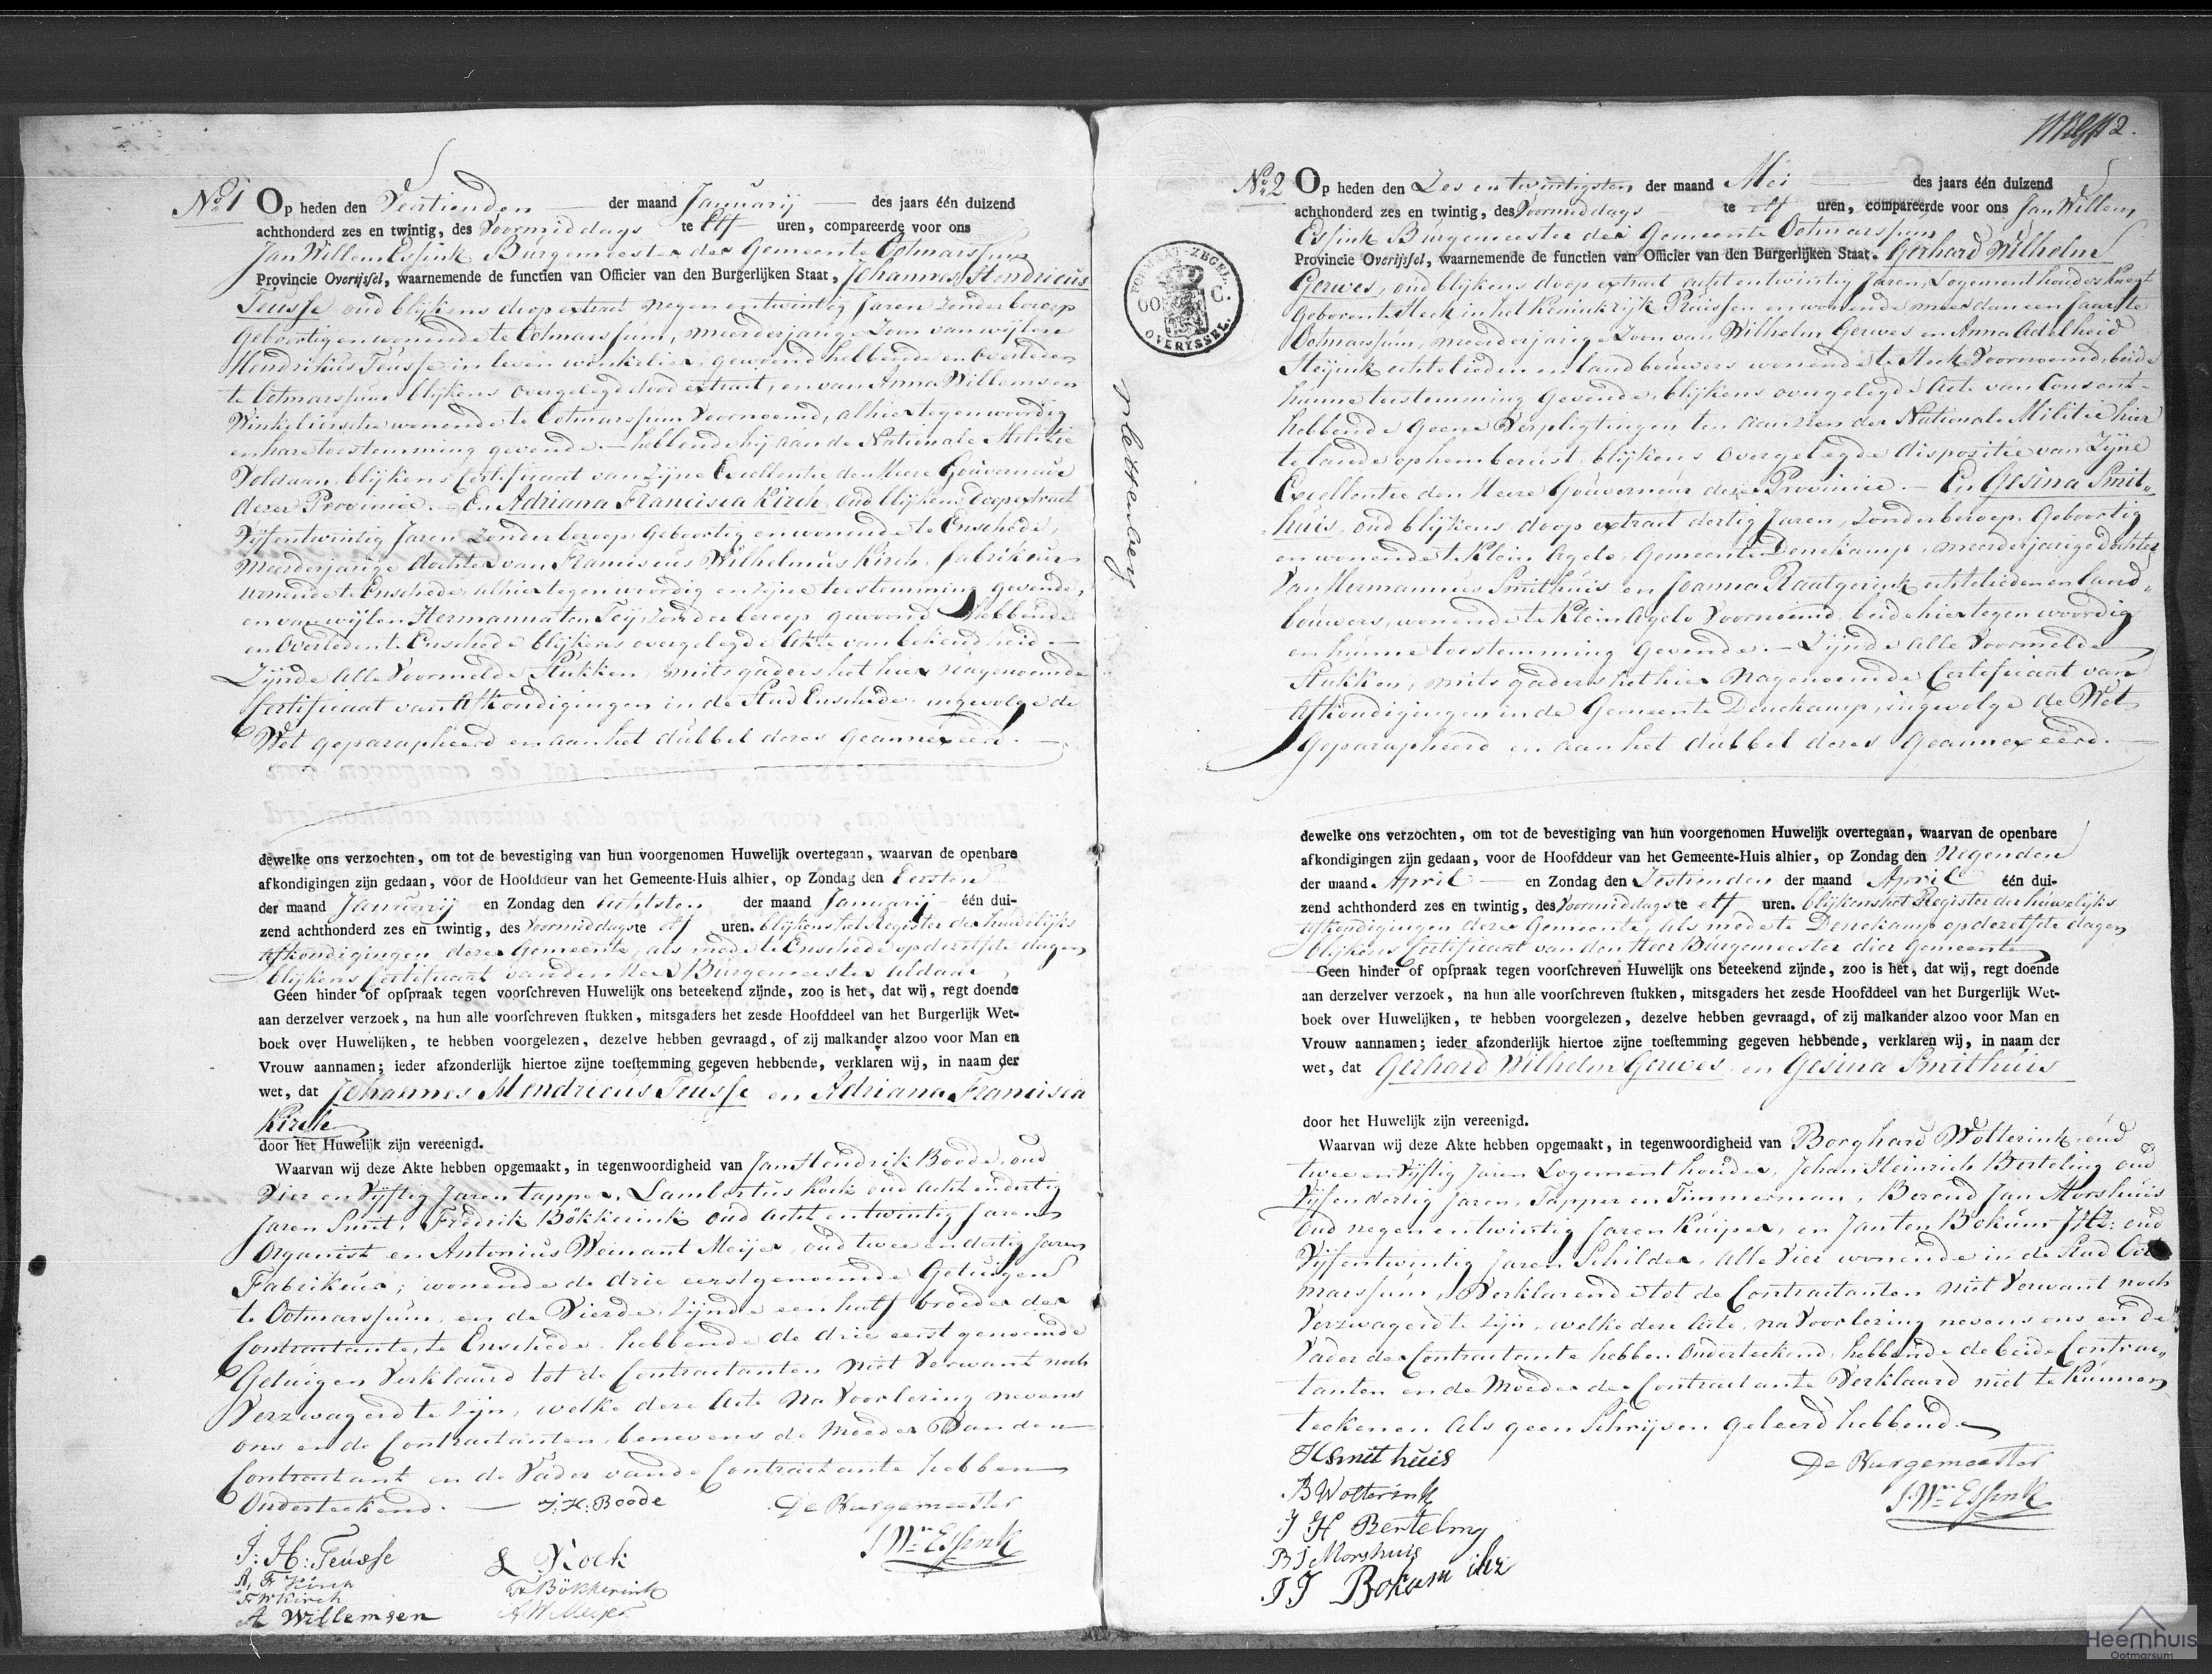 No. 1 Op heden den Veertienden der maand Januarij des jaars één duizend
achthonderd zes en twintig, des Voormiddags te Elf uren, compareerde voor ons
Jan Willem Essink Burgemeester der Gemeente Ootmarssum
Provincie Overijssel, waarnemende de functien van Officier van den Burgerlijken Staat, Johannes Hendricus
Teusse oud blijkens doop extract negen en twintig Jaren zonder beroep
Geboortig en wonende te Ootmarssum, meerderjarige Zoon van wijlen
Hendrikus Teusse in leven winkelier, gewoond hebbende en Overleden
te Ootmarssum blijkens overgelegd dood extract, en van Anna Willemsen
Winkeliersche wonende te Ootmarssum Voornoemd, alhier tegenwoordig
en hare toestemming gevende. — hebbende hij aan de Nationale Militie
Voldaan, blijkens Certificaat van Zijne Excellentie den Heere Gouverneur
dezer Provincie. — En Adriana Francisca Kirch, oud blijkens doop extract
Vijfentwintig Jaren Zonder beroep, Geboortig en wonende te Enschede,
Meerderjarige dochter van Franciscus Wilhelmus Kirch, Fabrikeur
wonende te Enschede alhier tegenwoordig en zijne toestemming gevende,
en van wijlen Hermanna ten Teij zonder beroep gewoond hebbende
en Overleden te Enschede blijkens overgelegde Akte van bekendheid. —
Zijnde Alle Voormelde Stukken, mitsgaders het hier nagenoemde
Certificaat van Afkondigingen in de Stad Enschede, ingevolge de
Wet geparapheerd en aan het dubbel dezes geannexeerd. —
dewelke ons verzochten, om tot de bevestiging van hun voorgenomen Huwelijk overtegaan, waarvan de openbare
afkondigingen zijn gedaan, voor de Hoofddeur van het Gemeente-Huis alhier, op Zondag den Eersten
der maand Januarij en Zondag den Achtsten der maand Januarij één dui-
zend achthonderd zes en twintig, des Voormiddags te elf uren. blijkens het Register der huwelijks
Afkondigingen dezer Gemeente, als mede te Enschede op dezelfde dagen
blijkens Certificaat van den Heer Burgemeester aldaar
Geen hinder of opspraak tegen voorschreven Huwelijk ons beteekend zijnde, zoo is het, dat wij, regt doende
aan derzelver verzoek, na hun alle voorschreven stukken, mitsgaders het zesde Hoofddeel van het Burgerlijk Wet-
boek over Huwelijken, te hebben voorgelezen, dezelve hebben gevraagd, of zij malkander alzoo voor Man en
Vrouw aannamen; ieder afzonderlijk hiertoe zijne toestemming gegeven hebbende, verklaren wij, in naam der
wet, dat Johannes Hendricus Teusse en Adriana Francisca
Kirch
door het Huwelijk zijn vereenigd.
Waarvan wij deze Akte hebben opgemaakt, in tegenwoordigheid van Jan Hendrik Boode, oud
Vier en Vijftig Jaren tapper, Lambertus Kock oud Acht en dertig
Jaren Smit, Fredrik Bökkerink oud Acht en twintig Jaren
Organist en Antonius Weinant Meijer oud twee en dertig Jaren
Fabrikeur; wonende de drie eerstgenoemde Getuigen
te Ootmarssum, en de Vierde, zijnde een half broeder der
Contractante, te Enschede, hebbende de drie eerst genoemde
Getuigen Verklaard tot de Contractanten niet Verwant noch
Verzwagerd te zijn, welke deze Acte na Voorlezing nevens
ons en de Contractanten, benevens de Moeder Van den
Contractant en de Vader van de Contractante hebben
Onderteekend. — J: H: Boode
De Burgemeester
J Wm Essink
J: H: Teusse
A, Fr Kirch
Fr W Kirch
A Willemsen
L Kock
Fr Bökkerink
A W Meijer
00 C.
OVERYSSEL.
plettenberg
2.
No. 2 Op heden den Zes en twintigsten der maand Mei des jaars één duizend
achthonderd zes en twintig, des Voormiddags te elf uren, compareerde voor ons Jan Willem
Essink Burgemeester der Gemeente Ootmarssum
Provincie Overijssel, waarnemende de functien van Officier van den Burgerlijken Staat. Gerhard Wilhelm
Gerwes, oud blijkens doop extract acht en twintig Jaren, Logementhouders Knegt
Geboren te Meck in het Koninkrijk Pruissen en wonende meer dan een Jaar te
Ootmarssum, meerderjarige Zoon van Wilhelm Gerwes en Anna Adelheid
echtelieden en landbouwers wonende te Meck Voornoemd, beide
hunne toestemming Gevende, blijkens overgelegde Acte van Consent —
hebbende Geene Verpligtingen ten aanzien der Nationale Militie hier
te lande op hem berust, blijkens overgelegde dispositie van Zijne
Excellentie den Heere Gouverneur dezer Provincie. — En Gesina Smit-
huis, oud blijkens doop extract dertig Jaren, zonder beroep, Geboortig
en wonende te Klein Agelo, Gemeente Denekamp, meerderjarige dochter
Van Hermannus Smithuis en Joanna Raatgerink echtelieden en land-
bouwers, wonende te Klein Agelo Voornoemd, beide hier tegenwoordig
en hunne toestemming Gevende. — Zijnde Alle Voormelde
Stukken, mitsgaders het hier Nagenoemde Certificaat van
Afkondigingen in de Gemeente Denekamp, ingevolge de Wet
Geparapheerd en aan het dubbel dezes Geannexeerd. —
dewelke ons verzochten, om tot de bevestiging van hun voorgenomen Huwelijk overtegaan, waarvan de openbare
afkondigingen zijn gedaan, voor de Hoofddeur van het Gemeente-Huis alhier, op Zondag den Negenden
der maand April en Zondag den Zestienden der maand April één dui-
zend achthonderd zes en twintig, des Voormiddags te elf uren. blijkens het Register der huwelijks
Afkondigingen dezer Gemeente, als mede te Denekamp op dezelfde dagen
blijkens Certificaat van den Heer Burgemeester dier Gemeente
Geen hinder of opspraak tegen voorschreven Huwelijk ons beteekend zijnde, zoo is het, dat wij, regt doende
aan derzelver verzoek, na hun alle voorschreven stukken, mitsgaders het zesde Hoofddeel van het Burgerlijk Wet-
boek over Huwelijken, te hebben voorgelezen, dezelve hebben gevraagd, of zij malkander alzoo voor Man en
Vrouw aannamen; ieder afzonderlijk hiertoe zijne toestemming gegeven hebbende, verklaren wij, in naam der
wet, dat Gerhard Wilhelm Gerwes en Gesina Smithuis
door het Huwelijk zijn vereenigd.
Waarvan wij deze Akte hebben opgemaakt, in tegenwoordigheid van Borghard Wolterink, oud
twee en Vijftig Jaren Logementhouder, Johan Heinrich Berteling oud
Vijfendertig Jaren, Tapper en Timmerman, Berend Jan Morshuis
Oud negen en twintig Jaren Kuiper, en Jan ten Bokum JHz: oud
Vijfentwintig Jaren Schilder, alle Vier wonende in de Stad Oot-
marssum, Verklarende tot de Contractanten niet Verwant noch
Verzwagerd te zijn, welke deze Acte, na Voorlezing nevens ons en de
Vader der Contractante hebben Onderteekend, hebbende de beide Contrac-
tanten en de Moeder der Contractante Verklaard niet te kunnen
teekenen als geen Schrijven geleerd hebbende
H Smithuis
B Wolterink
J H Berteling
B J Morshuis
J T Bokum ihz
De Burgemeester
J. Wm Essink
Heemhuis
Ootmarsum